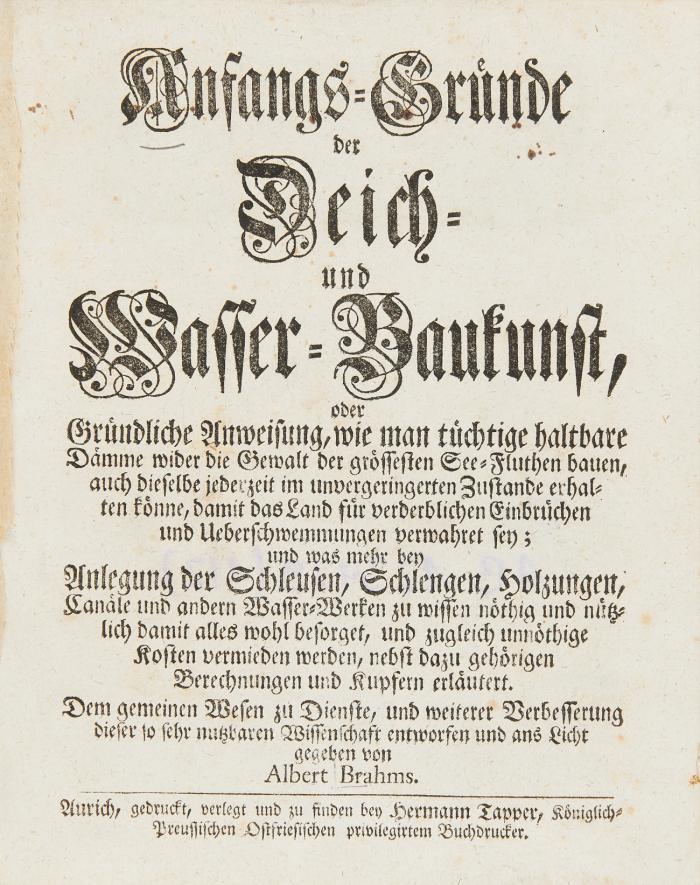 Anfangs-Gründe
der
Deich-
und
Wasser-Baukunst,
oder
Gründliche Anweisung, wie man tüchtige haltbare
Dämme wider die Gewalt der grössesten See-Fluthen bauen,
auch dieselbe jederzeit im unvergeringerten Zustande erhal-
ten könne, damit das Land für verderblichen Einbrüchen
und Ueberschwemmungen verwahret sey;
und was mehr bey
Anlegung der Schleusen, Schlengen, Holzungen,
Canäle und andern Wasser-Werken zu wissen nöthig und nütz-
lich damit alles wohl besorget, und zugleich unnöthige
Kosten vermieden werden, nebst dazu gehörigen
Berechnungen und Kupfern erläutert.
Dem gemeinen Wesen zu Dienste, und weiterer Verbesserung
dieser so sehr nutzbaren Wissenschaft entworfen und ans Licht
gegeben von
Albert Brahms.
Aurich, gedruckt, verlegt und zu finden bey Hermann Tapper, Königlich-
Preussischen Ostfriesischen privilegirtem Buchdrucker.